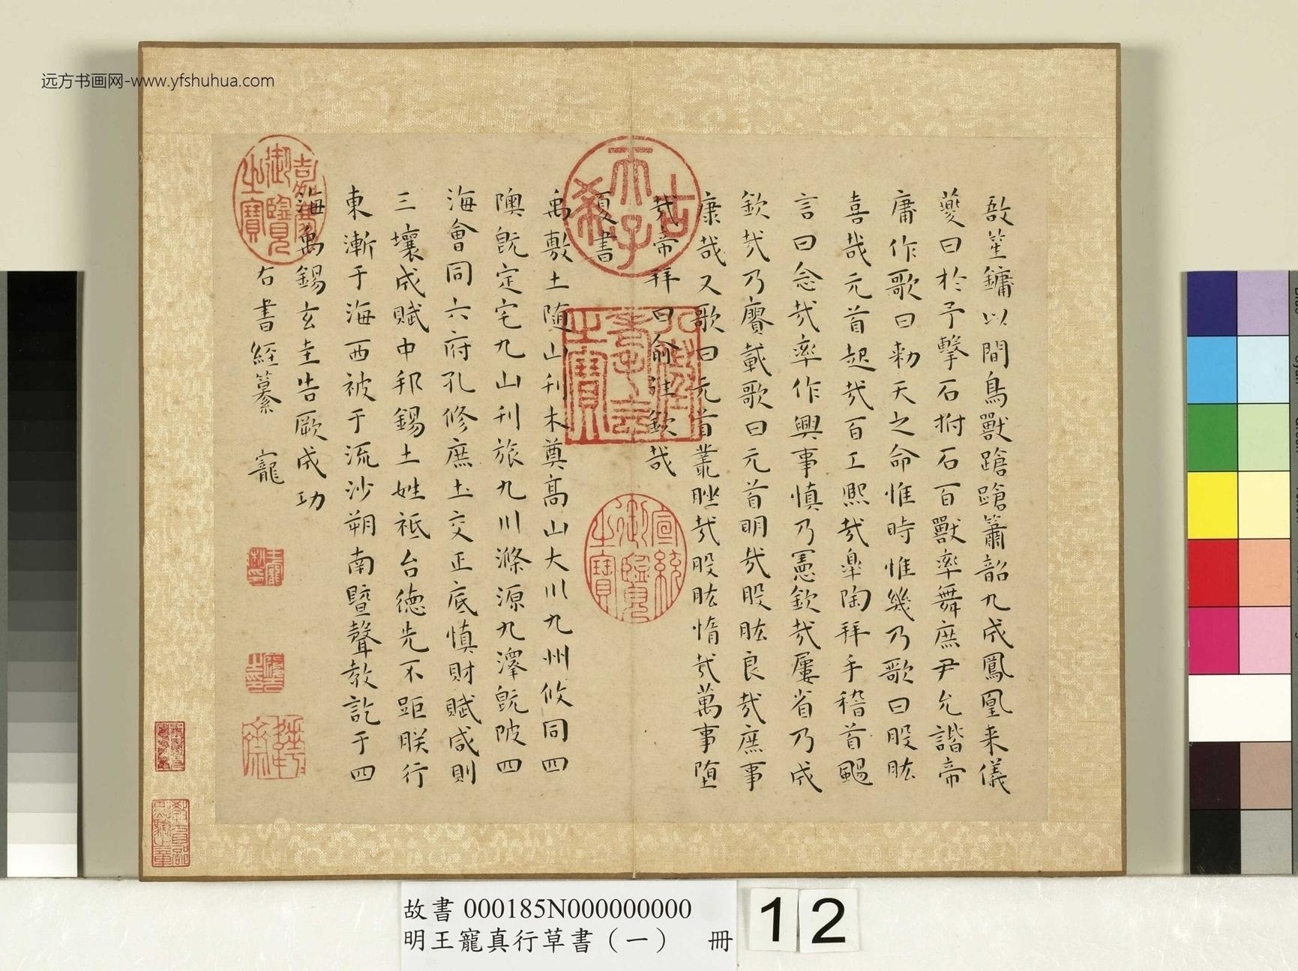 远方书画网-www.yfshuhua.com
敔笙鏞以間鳥獸蹌蹌簫韶九成鳳凰来儀
夔曰於予擊石拊石百獸率舞庶尹允諧帝
庸作歌曰勑天之命惟時惟幾乃歌曰股肱
喜哉元首起哉百工熙哉皋陶拜手稽首颺
言曰念哉率作興事慎乃憲欽哉屢省乃成
欽哉乃賡載歌曰元首明哉股肱良哉庶事
康哉又歌曰元首叢脞哉股肱惰哉萬事墮
哉帝拜曰俞往欽哉
夏書
禹敷土随山刊木奠高山大川九州攸同四
隩旣定宅九山刊旅九川滌源九澤旣陂四
海會同六府孔修庶土交正底慎財賦咸則
三壤成賦中邦錫土姓祗台德先不距朕行
東漸于海西被于流沙朔南暨聲教訖于四
海禹錫玄圭告厥成功
右書經纂 寵
古希天子
八徵耄念之寶
嘉慶御覽之寶
宣統御覽之寶
故書 000185N000000000
明王寵真行草書（一） 冊
12